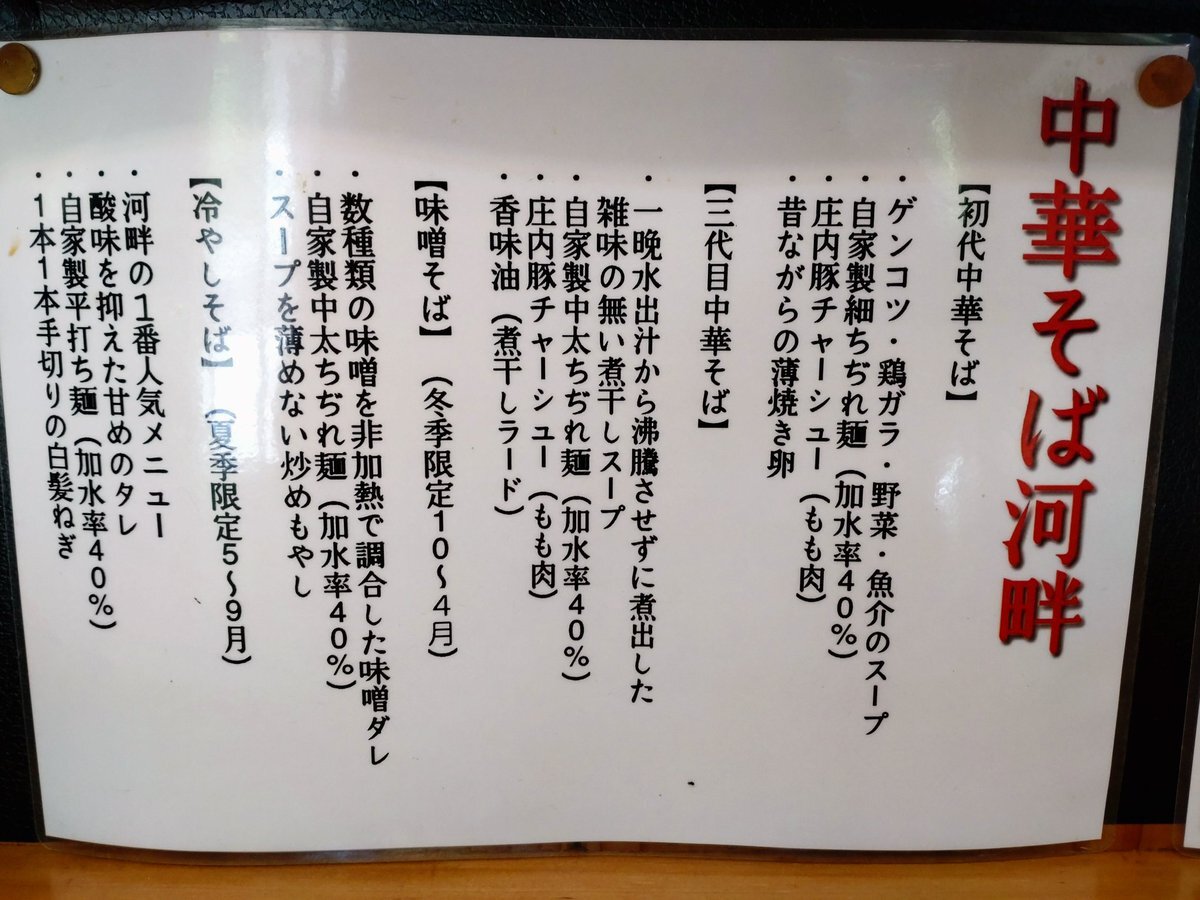 中華そば河畔
【初代中華そば】
・ゲンコツ・鶏ガラ・野菜・魚介のスープ
・自家製細ちぢれ麺（加水率４０％）
・庄内豚チャーシュー（もも肉）
・昔ながらの薄焼き卵
【三代目中華そば】
・一晩水出汁から沸騰させずに煮出した
雑味の無い煮干しスープ
・自家製中太ちぢれ麺（加水率４０％）
・庄内豚チャーシュー（もも肉）
・香味油（煮干しラード）
【味噌そば】（冬季限定１０～４月）
・数種類の味噌を非加熱で調合した味噌ダレ
・自家製中太ちぢれ麺（加水率４０％）
・スープを薄めない炒めもやし
【冷やしそば】（夏季限定５～９月）
・河畔の１番人気メニュー
・酸味を抑えた甘めのタレ
・自家製平打ち麺（加水率４０％）
・１本１本手切りの白髪ねぎ